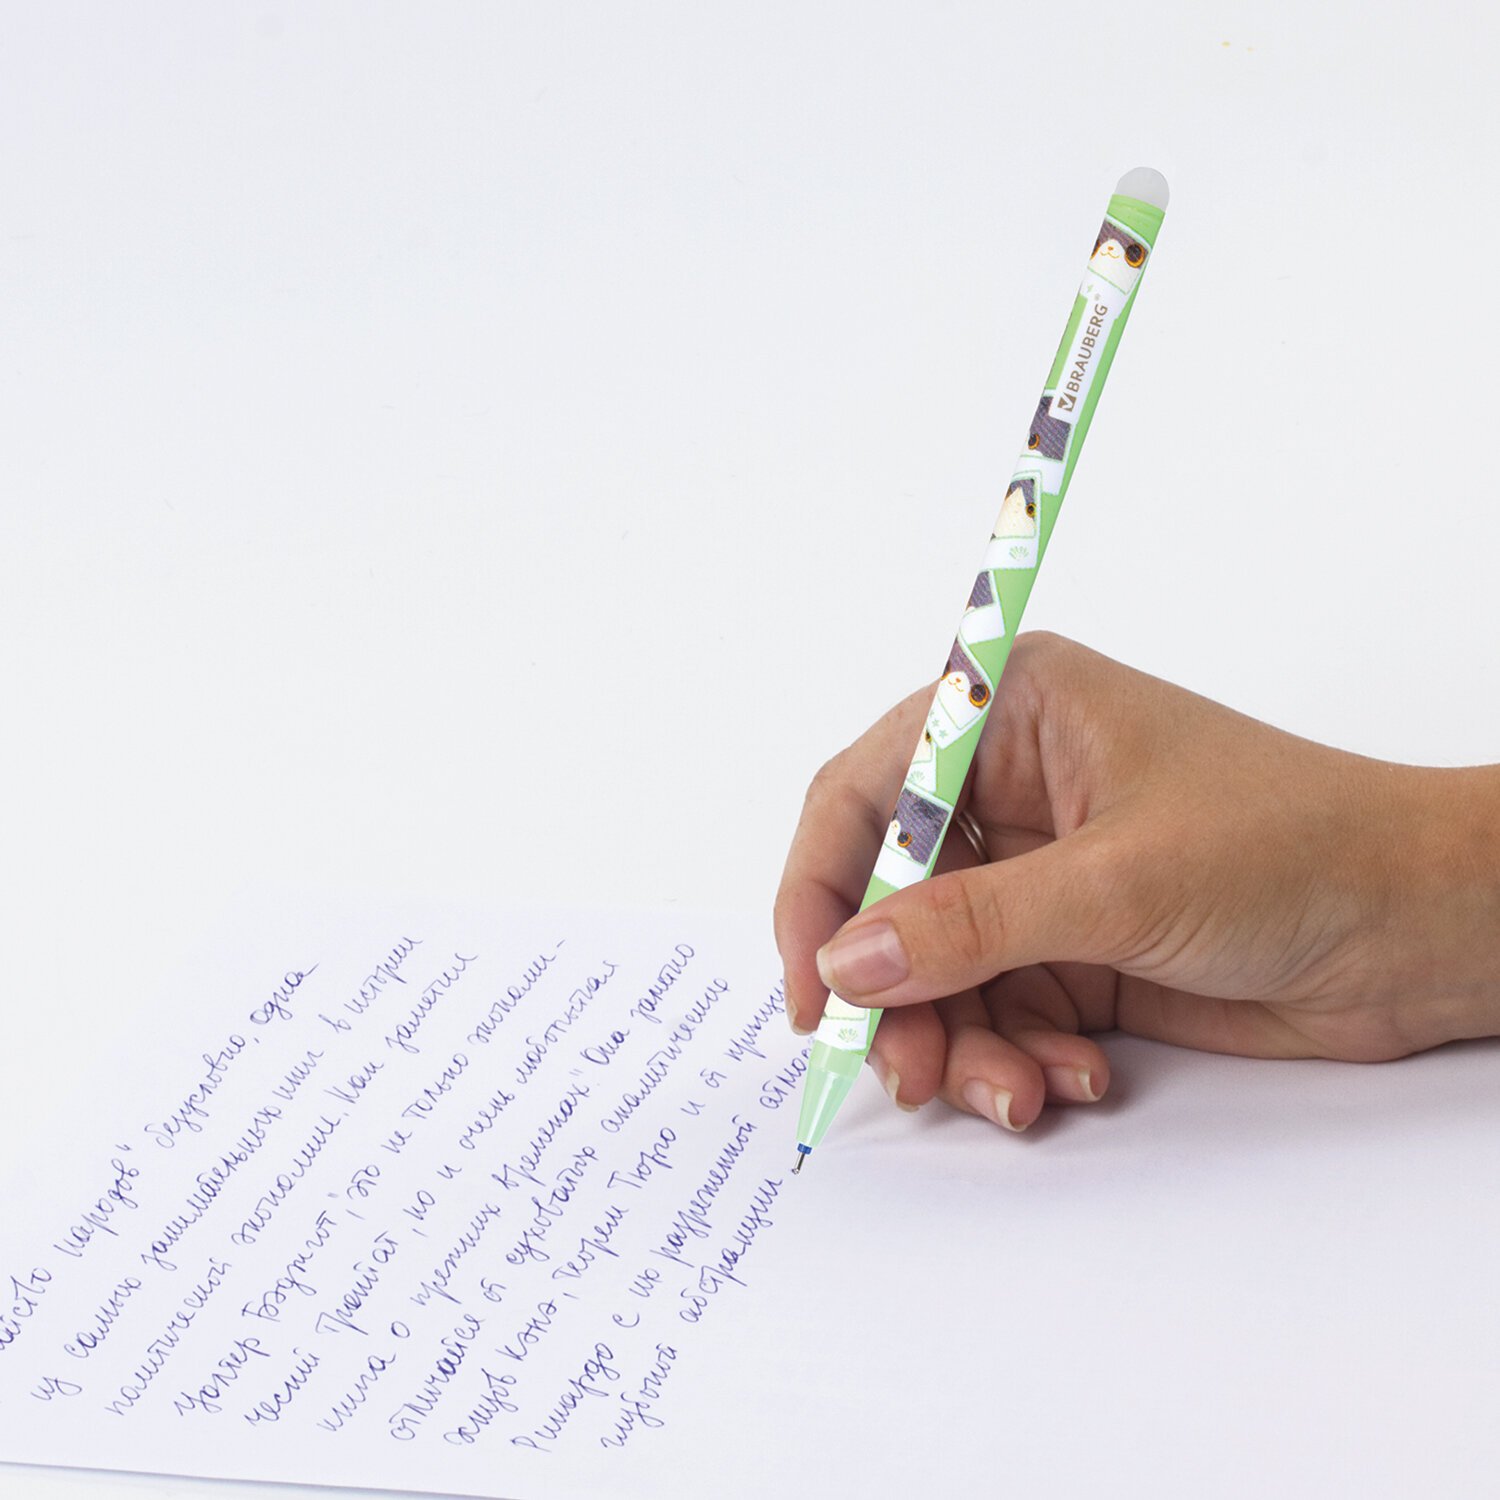 BRAUBERG®
народов" безусловно, одна
из самых занимательных книг в истории
политической экономии. Как заметил
Уолтер Бэджгот, "это не только экономи-
ческий трактат, но и очень любопытная
книга о прежних временах". Она заметно
отличается от суховатых аналитических
Кэна, теорем Тюрго и от
Рикардо с их разреженной
глубокой абстракции